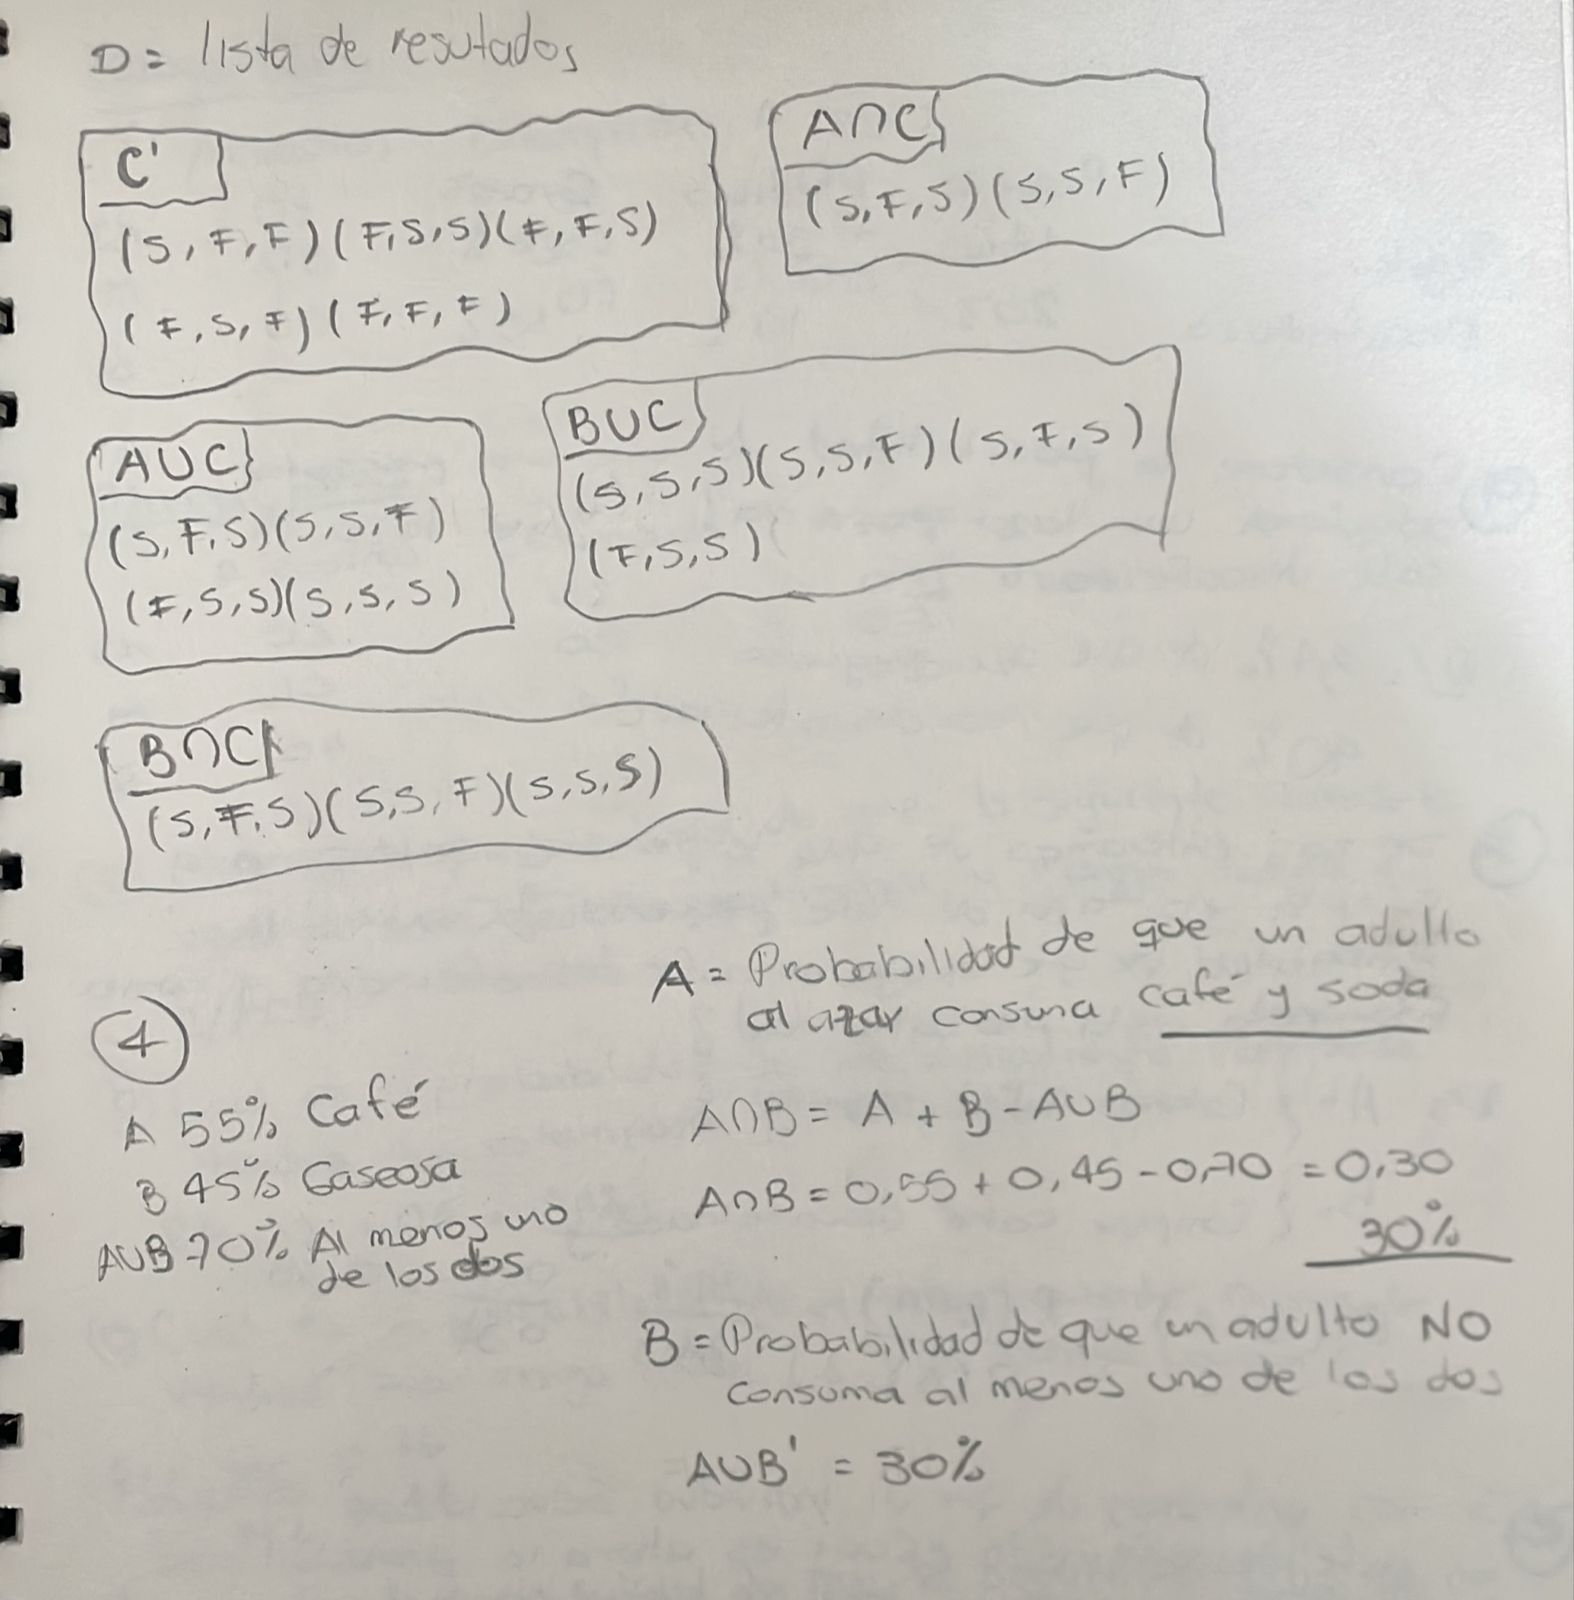 D = lista de resutados
C'
(S, F, F) (F, S, S) (F, F, S)
(F, S, F) (F, F, F)
A∩C
(S, F, S) (S, S, F)
A∪C
(S, F, S) (S, S, F)
(F, S, S) (S, S, S)
B∪C
(S, S, S) (S, S, F) (S, F, S)
(F, S, S)
B∩C
(S, F, S) (S, S, F) (S, S, S)
4
A 55% Café
B 45% Gaseosa
A∪B 70% Al menos uno
de los dos
A = Probabilidad de que un adulto
al azar consuma café y soda
A∩B = A + B - A∪B
A∩B = 0,55 + 0,45 - 0,70 = 0,30
30%
B = Probabilidad de que un adulto NO
consuma al menos uno de los dos
A∪B' = 30%